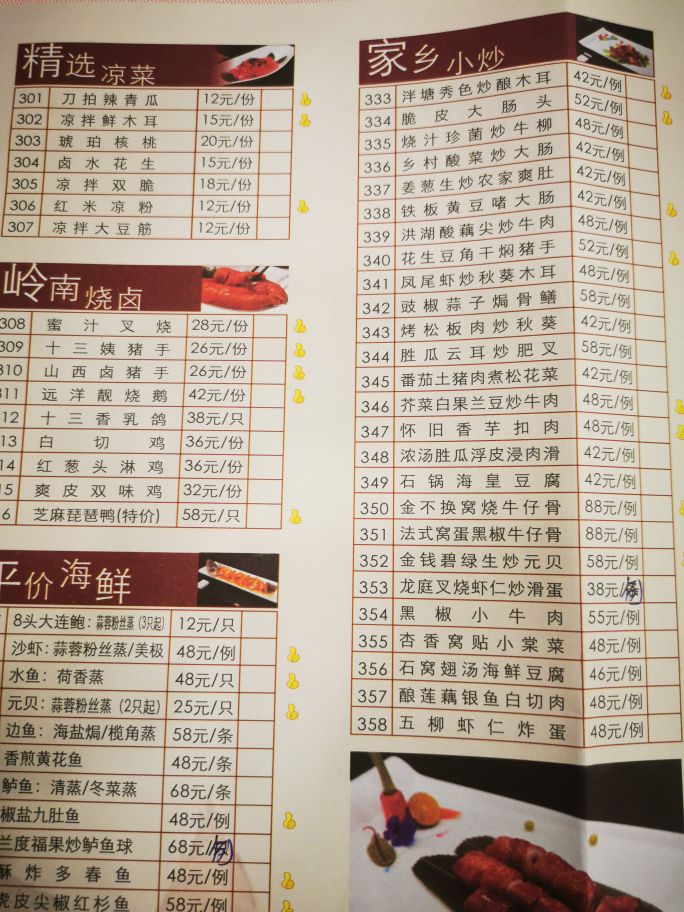 精选凉菜
301 刀拍辣青瓜 12元/份
302 凉拌鲜木耳 15元/份
303 琥珀核桃 20元/份
304 卤水花生 15元/份
305 凉拌双脆 18元/份
306 红米凉粉 12元/份
307 凉拌大豆筋 12元/份
岭南烧卤
308 蜜汁叉烧 28元/份
309 十三姨猪手 26元/份
310 山西卤猪手 26元/份
311 远洋靓烧鹅 42元/份
12 十三香乳鸽 38元/只
13 白切鸡 36元/份
14 红葱头淋鸡 36元/份
15 爽皮双味鸡 32元/份
6 芝麻琵琶鸭(特价) 58元/只
平价海鲜
8头大连鲍：蒜蓉粉丝蒸(3只起) 12元/只
沙虾：蒜蓉粉丝蒸/美极 48元/例
水鱼：荷香蒸 48元/只
元贝：蒜蓉粉丝蒸(2只起) 25元/只
边鱼：海盐焗/榄角蒸 58元/条
香煎黄花鱼 48元/条
鲈鱼：清蒸/冬菜蒸 68元/条
椒盐九肚鱼 48元/例
兰度福果炒鲈鱼球 68元/例
酥炸多春鱼 48元/例
虎皮尖椒红杉鱼 58元/例
家乡小炒
333 泮塘秀色炒酿木耳 42元/例
334 脆皮大肠头 52元/例
335 烧汁珍菌炒牛柳 48元/例
336 乡村酸菜炒大肠 42元/例
337 姜葱生炒农家爽肚 42元/例
338 铁板黄豆啫大肠 42元/例
339 洪湖酸藕尖炒牛肉 48元/例
340 花生豆角干焖猪手 52元/例
341 凤尾虾炒秋葵木耳 48元/例
342 豉椒蒜子焗骨鳝 58元/例
343 烤松板肉炒秋葵 42元/例
344 胜瓜云耳炒肥叉 58元/例
345 番茄土猪肉煮松花菜 42元/例
346 芥菜白果兰豆炒牛肉 48元/例
347 怀旧香芋扣肉 48元/例
348 浓汤胜瓜浮皮浸肉滑 42元/例
349 石锅海皇豆腐 42元/例
350 金不换窝烧牛仔骨 88元/例
351 法式窝蛋黑椒牛仔骨 88元/例
352 金钱碧绿生炒元贝 58元/例
353 龙庭叉烧虾仁炒滑蛋 38元/例
354 黑椒小牛肉 55元/例
355 杏香窝贴小棠菜 48元/例
356 石窝翅汤海鲜豆腐 46元/例
357 酿莲藕银鱼白切肉 48元/例
358 五柳虾仁炸蛋 48元/例